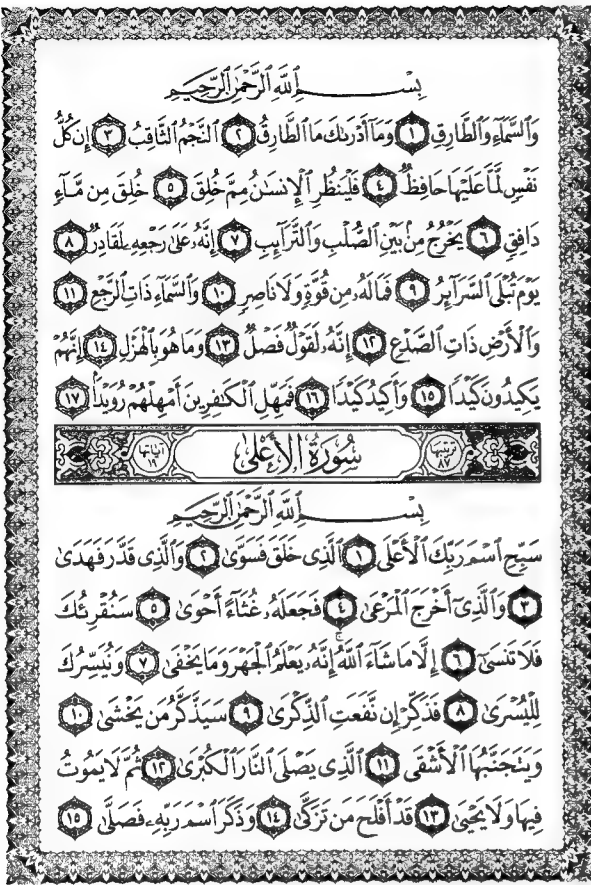 بِسْمِ اللَّهِ الرَّحْمَٰنِ الرَّحِيمِ
وَالسَّمَاءِ وَالطَّارِقِ ١ وَمَا أَدْرَىٰكَ مَا الطَّارِقُ ٢ النَّجْمُ الثَّاقِبُ ٣ إِن كُلُّ
نَفْسٍ لَّمَّا عَلَيْهَا حَافِظٌ ٤ فَلْيَنظُرِ الْإِنسَٰنُ مِمَّ خُلِقَ ٥ خُلِقَ مِن مَّاءٍ
دَافِقٍ ٦ يَخْرُجُ مِنۢ بَيْنِ الصُّلْبِ وَالتَّرَائِبِ ٧ إِنَّهُۥ عَلَىٰ رَجْعِهِۦ لَقَادِرٌ ٨
يَوْمَ تُبْلَى السَّرَائِرُ ٩ فَمَا لَهُۥ مِن قُوَّةٍ وَلَا نَاصِرٍ ١٠ وَالسَّمَاءِ ذَاتِ الرَّجْعِ ١١
وَالْأَرْضِ ذَاتِ الصَّدْعِ ١٢ إِنَّهُۥ لَقَوْلٌ فَصْلٌ ١٣ وَمَا هُوَ بِالْهَزْلِ ١٤ إِنَّهُمْ
يَكِيدُونَ كَيْدًا ١٥ وَأَكِيدُ كَيْدًا ١٦ فَمَهِّلِ الْكَٰفِرِينَ أَمْهِلْهُمْ رُوَيْدًا ١٧
ترتيبها ٨٧ سُورَةُ الْأَعْلَىٰ آياتها ١٩
بِسْمِ اللَّهِ الرَّحْمَٰنِ الرَّحِيمِ
سَبِّحِ اسْمَ رَبِّكَ الْأَعْلَى ١ الَّذِى خَلَقَ فَسَوَّىٰ ٢ وَالَّذِى قَدَّرَ فَهَدَىٰ
٣ وَالَّذِى أَخْرَجَ الْمَرْعَىٰ ٤ فَجَعَلَهُۥ غُثَاءً أَحْوَىٰ ٥ سَنُقْرِئُكَ
فَلَا تَنسَىٰ ٦ إِلَّا مَا شَاءَ اللَّهُ ۚ إِنَّهُۥ يَعْلَمُ الْجَهْرَ وَمَا يَخْفَىٰ ٧ وَنُيَسِّرُكَ
لِلْيُسْرَىٰ ٨ فَذَكِّرْ إِن نَّفَعَتِ الذِّكْرَىٰ ٩ سَيَذَّكَّرُ مَن يَخْشَىٰ ١٠
وَيَتَجَنَّبُهَا الْأَشْقَى ١١ الَّذِى يَصْلَى النَّارَ الْكُبْرَىٰ ١٢ ثُمَّ لَا يَمُوتُ
فِيهَا وَلَا يَحْيَىٰ ١٣ قَدْ أَفْلَحَ مَن تَزَكَّىٰ ١٤ وَذَكَرَ اسْمَ رَبِّهِۦ فَصَلَّىٰ ١٥